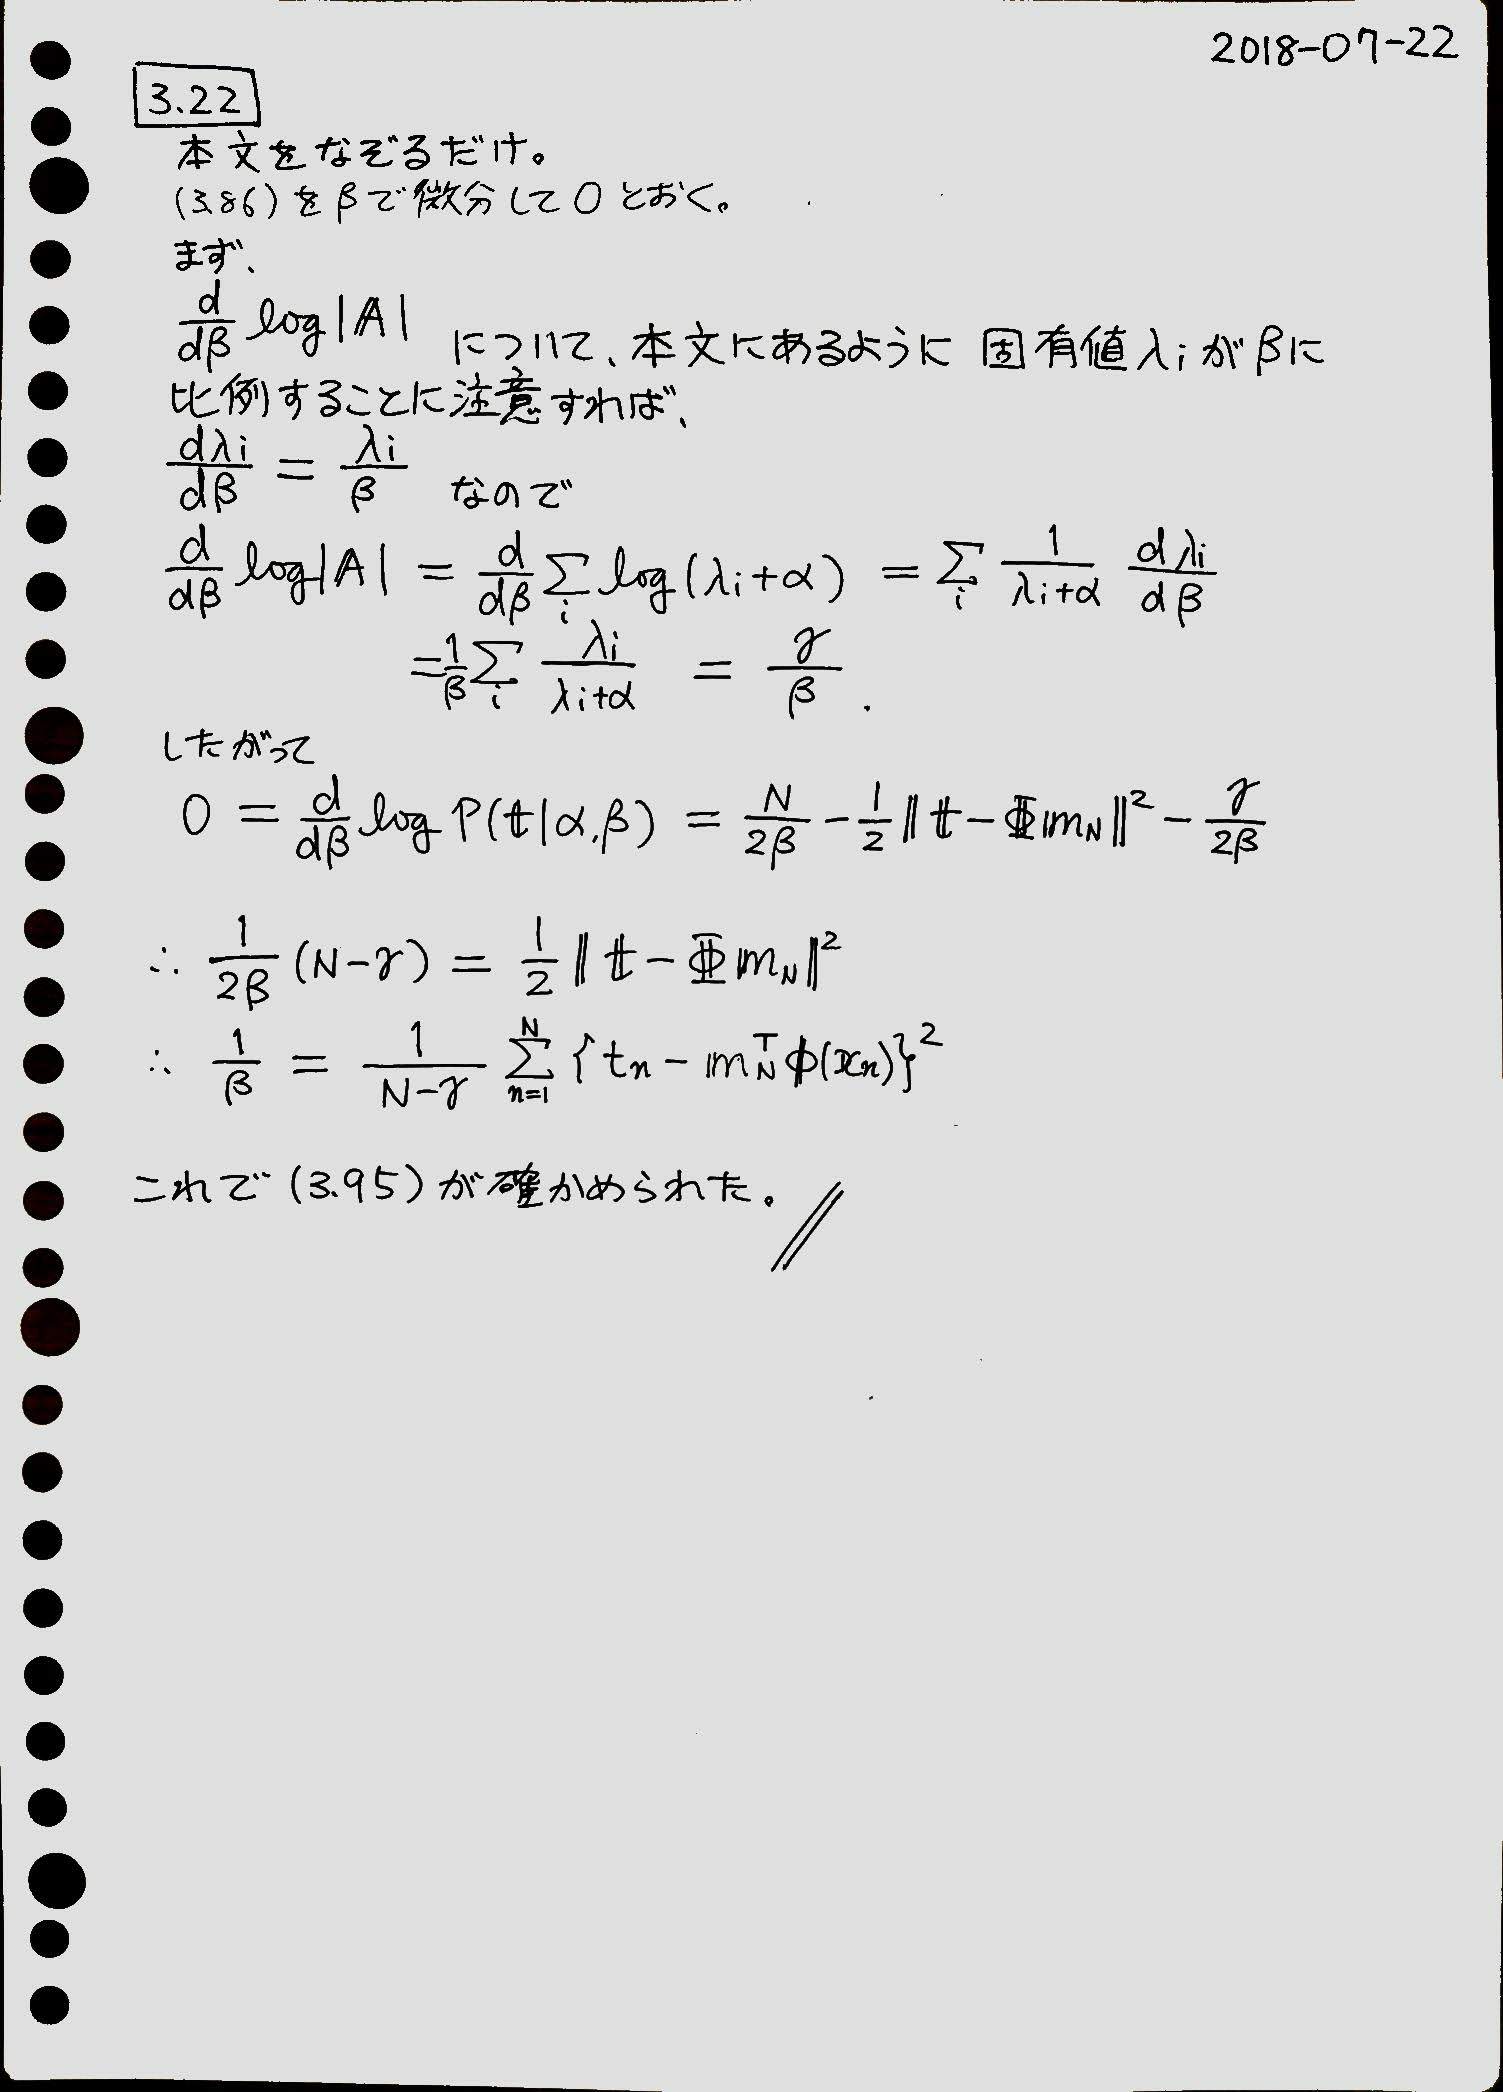 2018-07-22
3.22
本文をなぞるだけ。
(3.86)をβで微分して0とおく。
まず、
d/dβ log|A| について、本文にあるように 固有値λiがβに
比例することに注意すれば、
dλi/dβ = λi/β なので
d/dβ log|A| = d/dβ Σ_i log(λi+α) = Σ_i 1/(λi+α) dλi/dβ
= 1/β Σ_i λi/(λi+α) = γ/β .
したがって
0 = d/dβ log P(t|α,β) = N/2β - 1/2 ‖t-Φm_N‖² - γ/2β
∴ 1/2β (N-γ) = 1/2 ‖t-Φm_N‖²
∴ 1/β = 1/(N-γ) Σ_{n=1}^{N} {t_n - m_N^T φ(x_n)}²
これで(3.95)が確かめられた。//